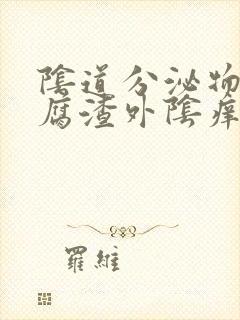 陰道分泌物
腐渣外陰癢
羅維